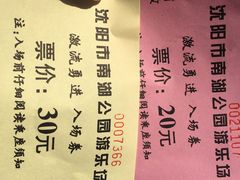 沈阳市南湖公园游乐场
激流勇进 入场券
票价：30元
注：入场前仔细阅读乘座须知
0007366
沈阳市南湖公园游乐场
激流勇进 入场券
票价：20元
仔细阅读乘座须知